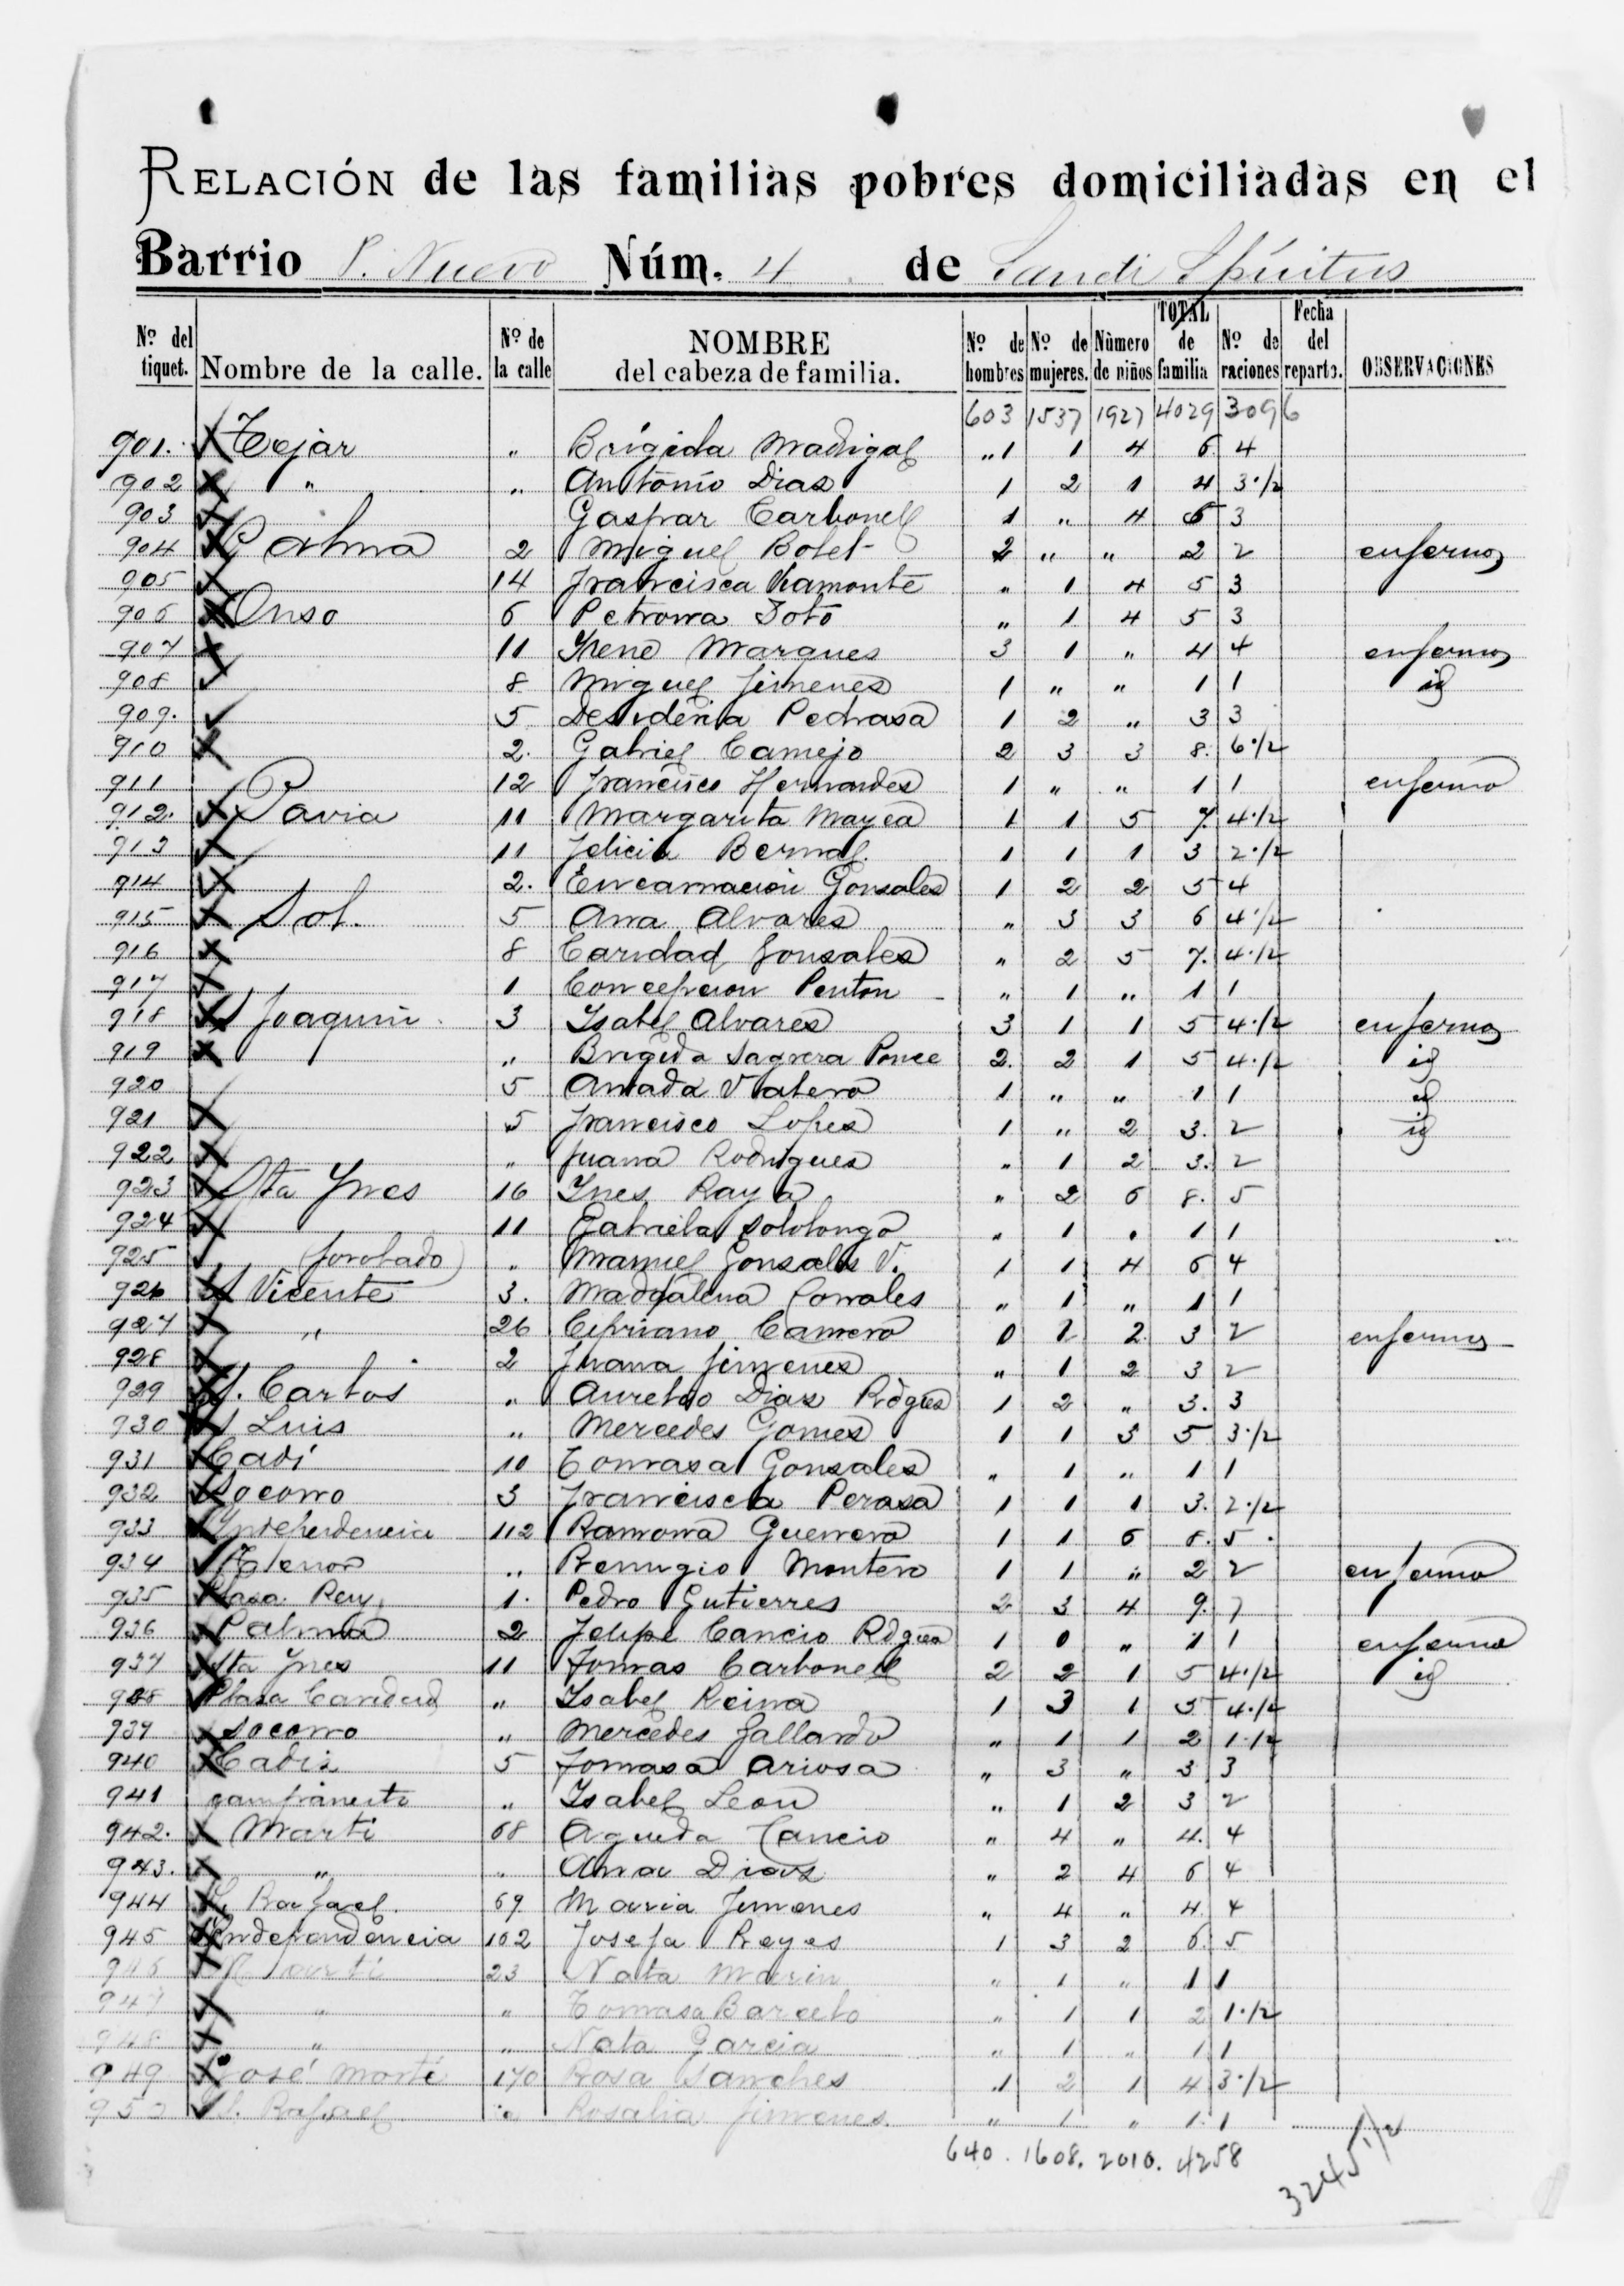 RELACIÓN de las familias pobres domiciliadas en el
Barrio P. Nuevo Núm. 4 de Sancti Spíritus
Nº del tiquet. Nombre de la calle. Nº de la calle NOMBRE del cabeza de familia. Nº de hombres Nº de mujeres. Número de niños TOTAL de familia Nº de raciones Fecha del reparto. OBSERVACIONES
603 1537 1927 4029 3096
901. Tejar " Brígida Madrigal " 1 1 4 6 4
902 " " Antonio Dias 1 2 1 4 3·1/2
903 Gaspar Carbonell 1 " 4 5 3
904 Palma 2 Miguel Bolet 2 " " 2 2 enfermos
905 14 Francisca Viamonte " 1 4 5 3
906 Onso 6 Petrona Soto " 1 4 5 3
907 11 Irene Marques 3 1 " 4 4 enfermos
908 8 Miguel Jimenes 1 " " 1 1 id
909. 5 Desideria Pedrasa 1 2 " 3 3
910 2. Gabriel Camejo 2 3 3 8. 6·1/2
911 12 Francisco Hernandes 1 " " 1 1 enfermo
912. Pavia 11 Margarita Mayea 1 1 5 7. 4·1/2
913 11 Felicia Bernal. 1 1 1 3 2·1/2
914 2. Encarnacion Gonsales 1 2 2 5 4
915 Sol. 5 Ana Alvares " 3 3 6 4·1/2
916 8 Caridad Gonsales " 2 5 7. 4·1/2
917 1 Concepcion Penton " 1 " 1 1
918 S Joaquin. 3 Isabel Alvares 3 1 1 5 4·1/2 enfermos
919 " Brigida Sagrera Ponce 2. 2 1 5 4·1/2 id
920 5 Amada Valero 1 " " 1 1 id
921 5 Francisco Lopes 1 " 2 3. 2 id
922 " Juana Rodrigues " 1 2 3. 2
923 Sta Ynes 16 Ynes Raya " 2 6 8. 5
924 11 Gabriela Sotolongo " 1 " 1 1
925 (Jorobado) " Manuel Gonsales V. 1 1 4 6 4
926 S Vicente 3. Magdalena Corrales " 1 " 1 1
927 " 26 Cipriano Camero 0 1 2 3 2 enfermos
928 2 Juana Jimenes " 1 2 3 2
929 S. Carlos " Aurelio Dias Rdgues 1 2 " 3. 3
930 S Luis " Mercedes Gomes 1 1 3 5 3·1/2
931 Cadi 10 Tomasa Gonsales " 1 " 1 1
932 Socorro 3 Francisca Perasa 1 1 1 3. 2·1/2
933 Yndependencia 112 Ramona Guerrera 1 1 6 8. 5
934 " Remigio Montero 1 1 " 2 2 enfermo
935 Plasa Rey 1. Pedro Gutierres 2 3 4 9. 7
936 Palma 2 Felipe Cancio Rdgues 1 0 " 1 1 enfermo
937 Sta Ynes 11 Tomas Carbonell 2 2 1 5 4·1/2 id
938 Plasa Caridad " Isabel Reina 1 3 1 5 4·1/2
939 Socorro " Mercedes Gallardo " 1 1 2 1·1/2
940 Cadis 5 Tomasa Ariosa " 3 " 3 3
941 campamento " Isabel Leon " 1 2 3 2
942. Marti 68 Agueda Cancio " 4 " 4. 4
943. " " Ana Dias " 2 4 6 4
944 S. Rafael. 69 Maria Jimenes " 4 " 4 4
945 Yndependencia 102 Josefa Reyes 1 3 2 6. 5
946 Marti 23 Nata Marin " 1 " 1 1
947 " " Tomasa Barcelo " 1 1 2 1·1/2
948 " " Nata Garcia " 1 " 1 1
949 José Marti 170 Rosa Sanches 1 2 1 4 3·1/2
950 S. Rafael " Rosalia Jimenes. " 1 " 1. 1
640. 1608. 2010. 4258
3245 1/2